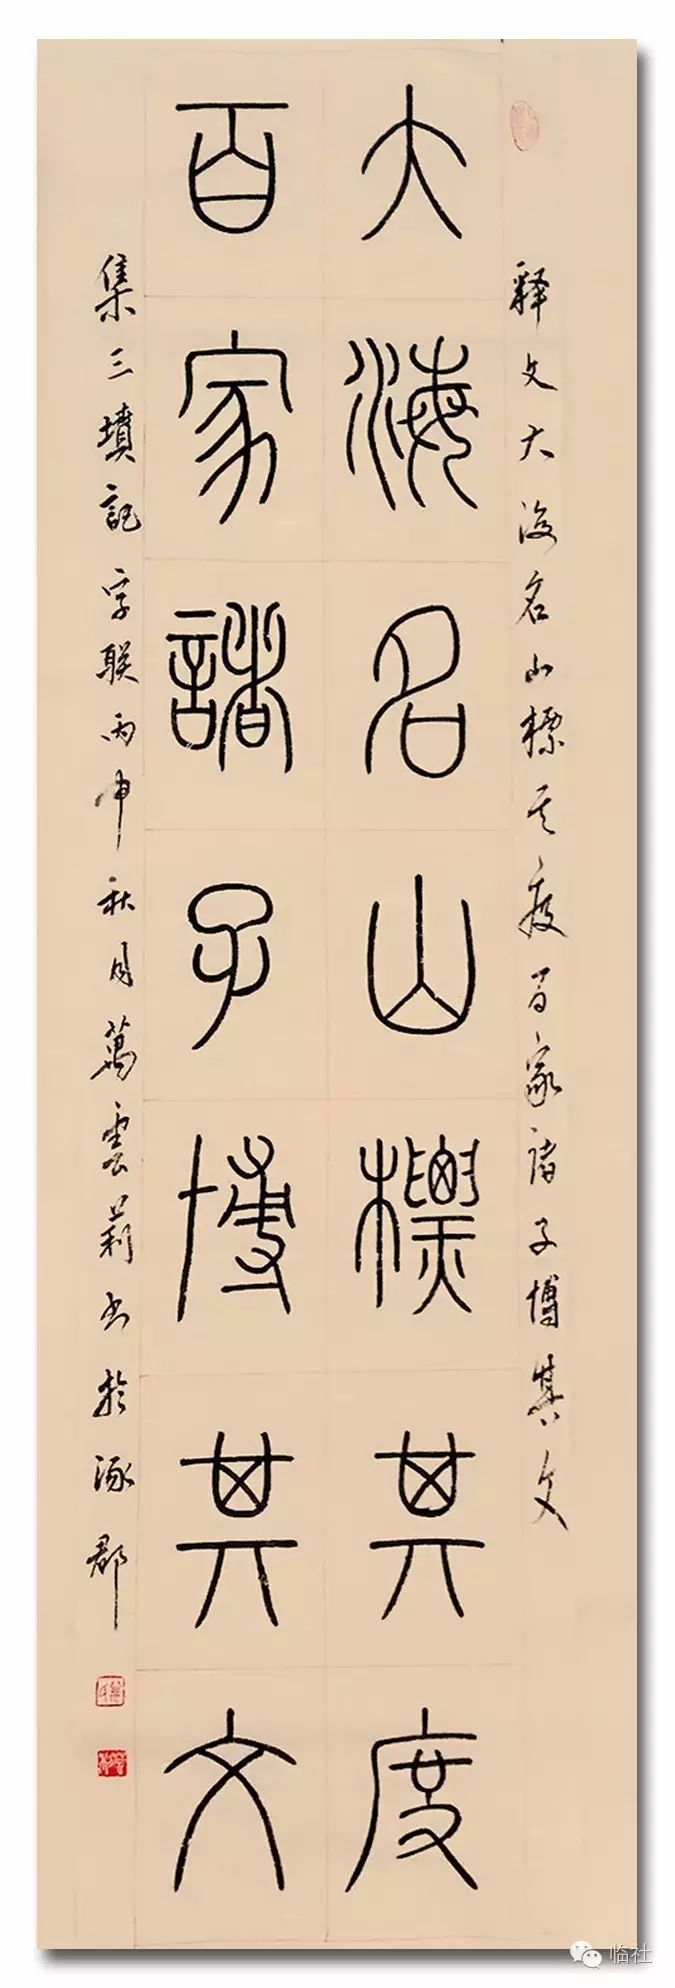 釋文大海名山標其度百家諸子博其文
大海名山標其度
百家諸子博其文
集三墳記字联丙申秋月萬雲莉书於涿郡
临社